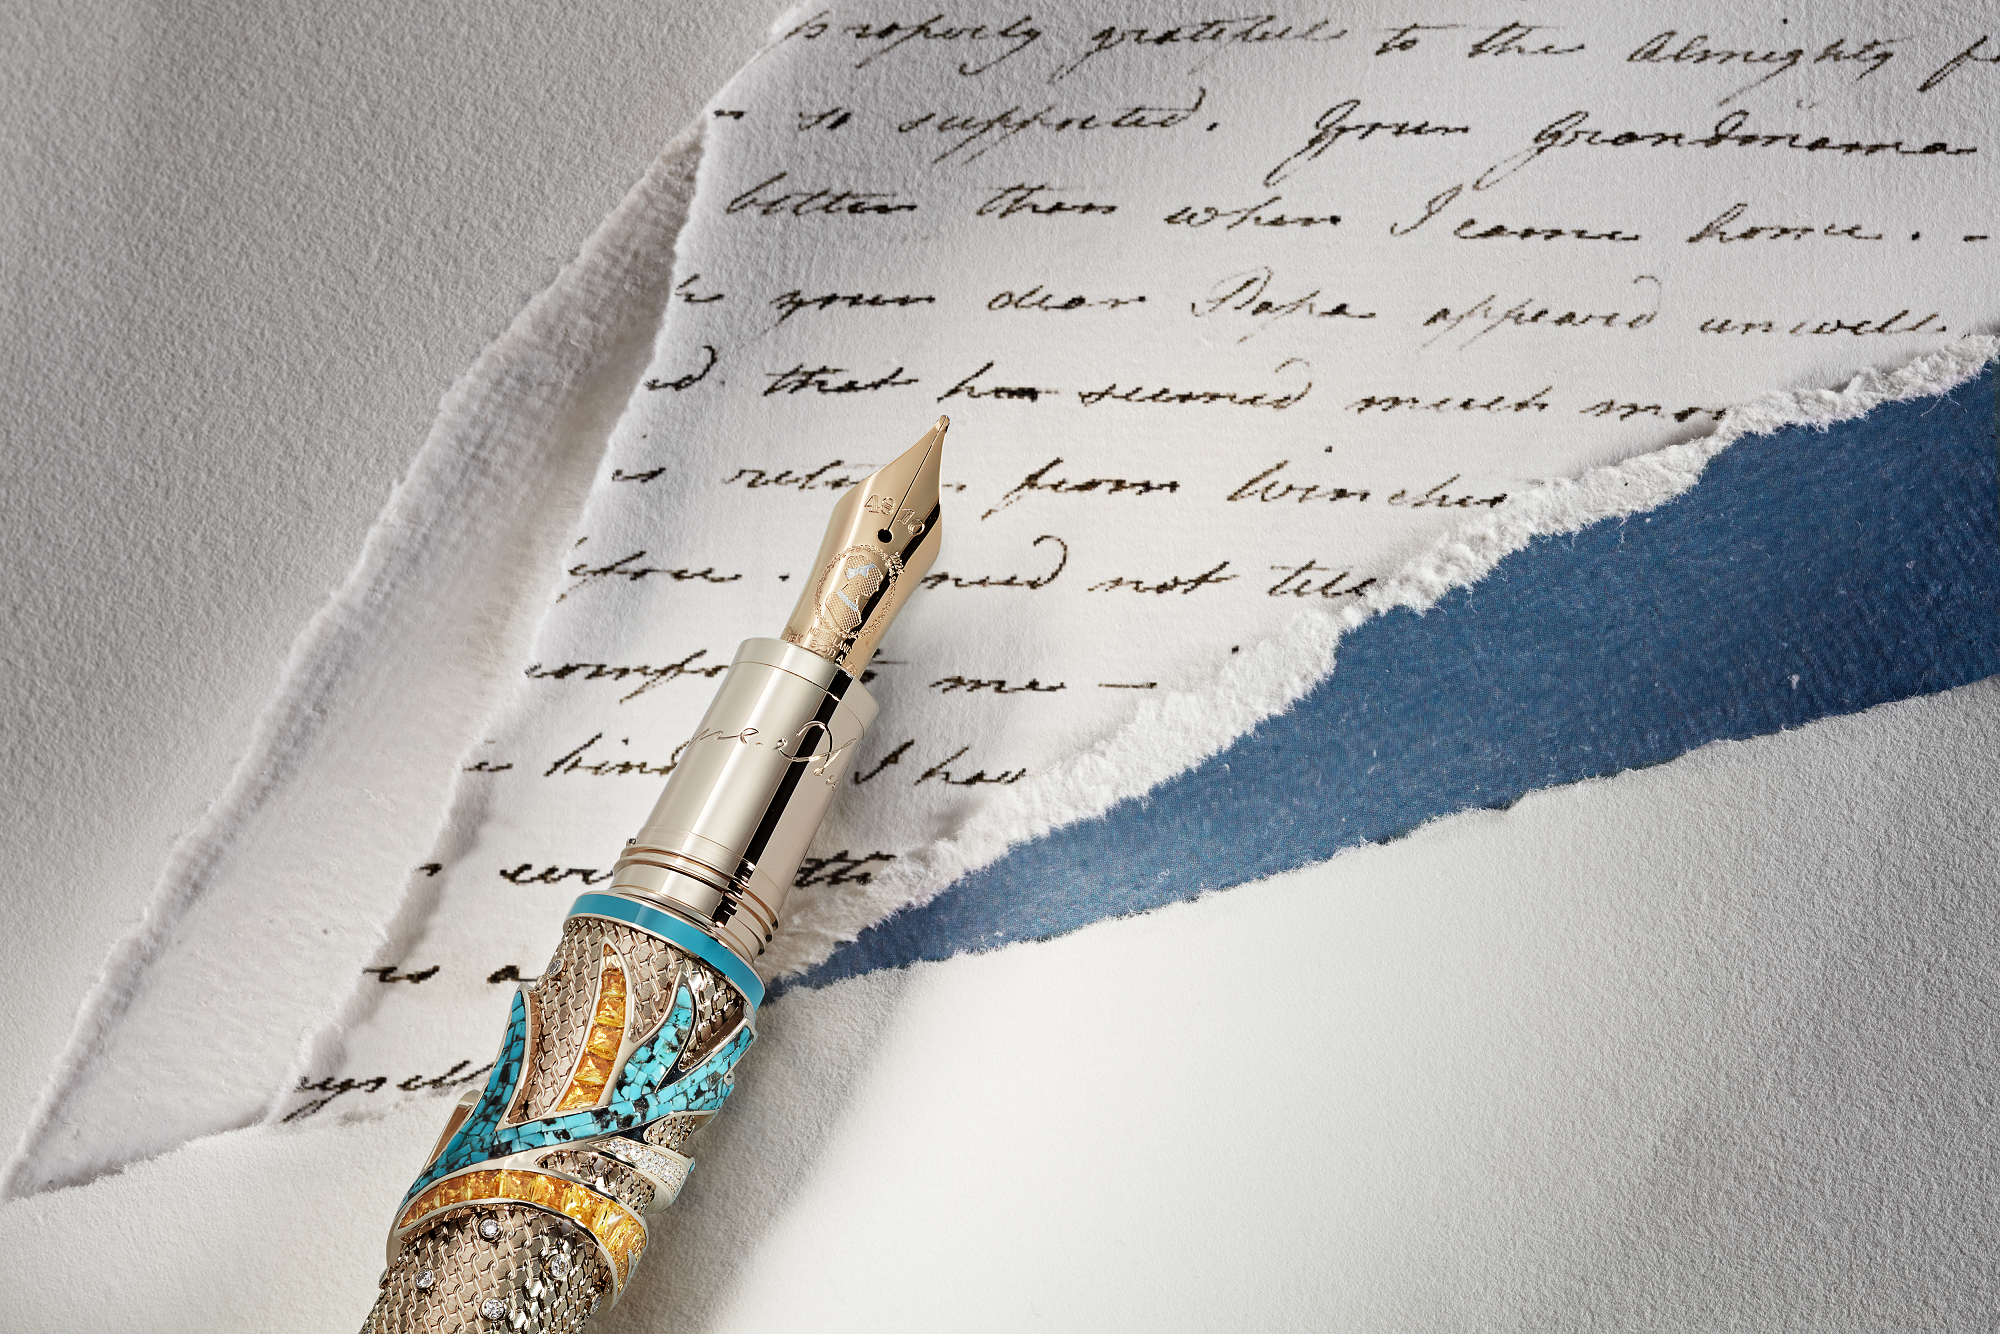 properly grateful to the Almighty f
so supported. Your Grandmama
better than when I came home. -
your dear Papa appeared unwell.
d. that has seemed much mor
is retu from Winches
efore. need not tell
comfo me —
kind I hav
th
is a
myself
4810